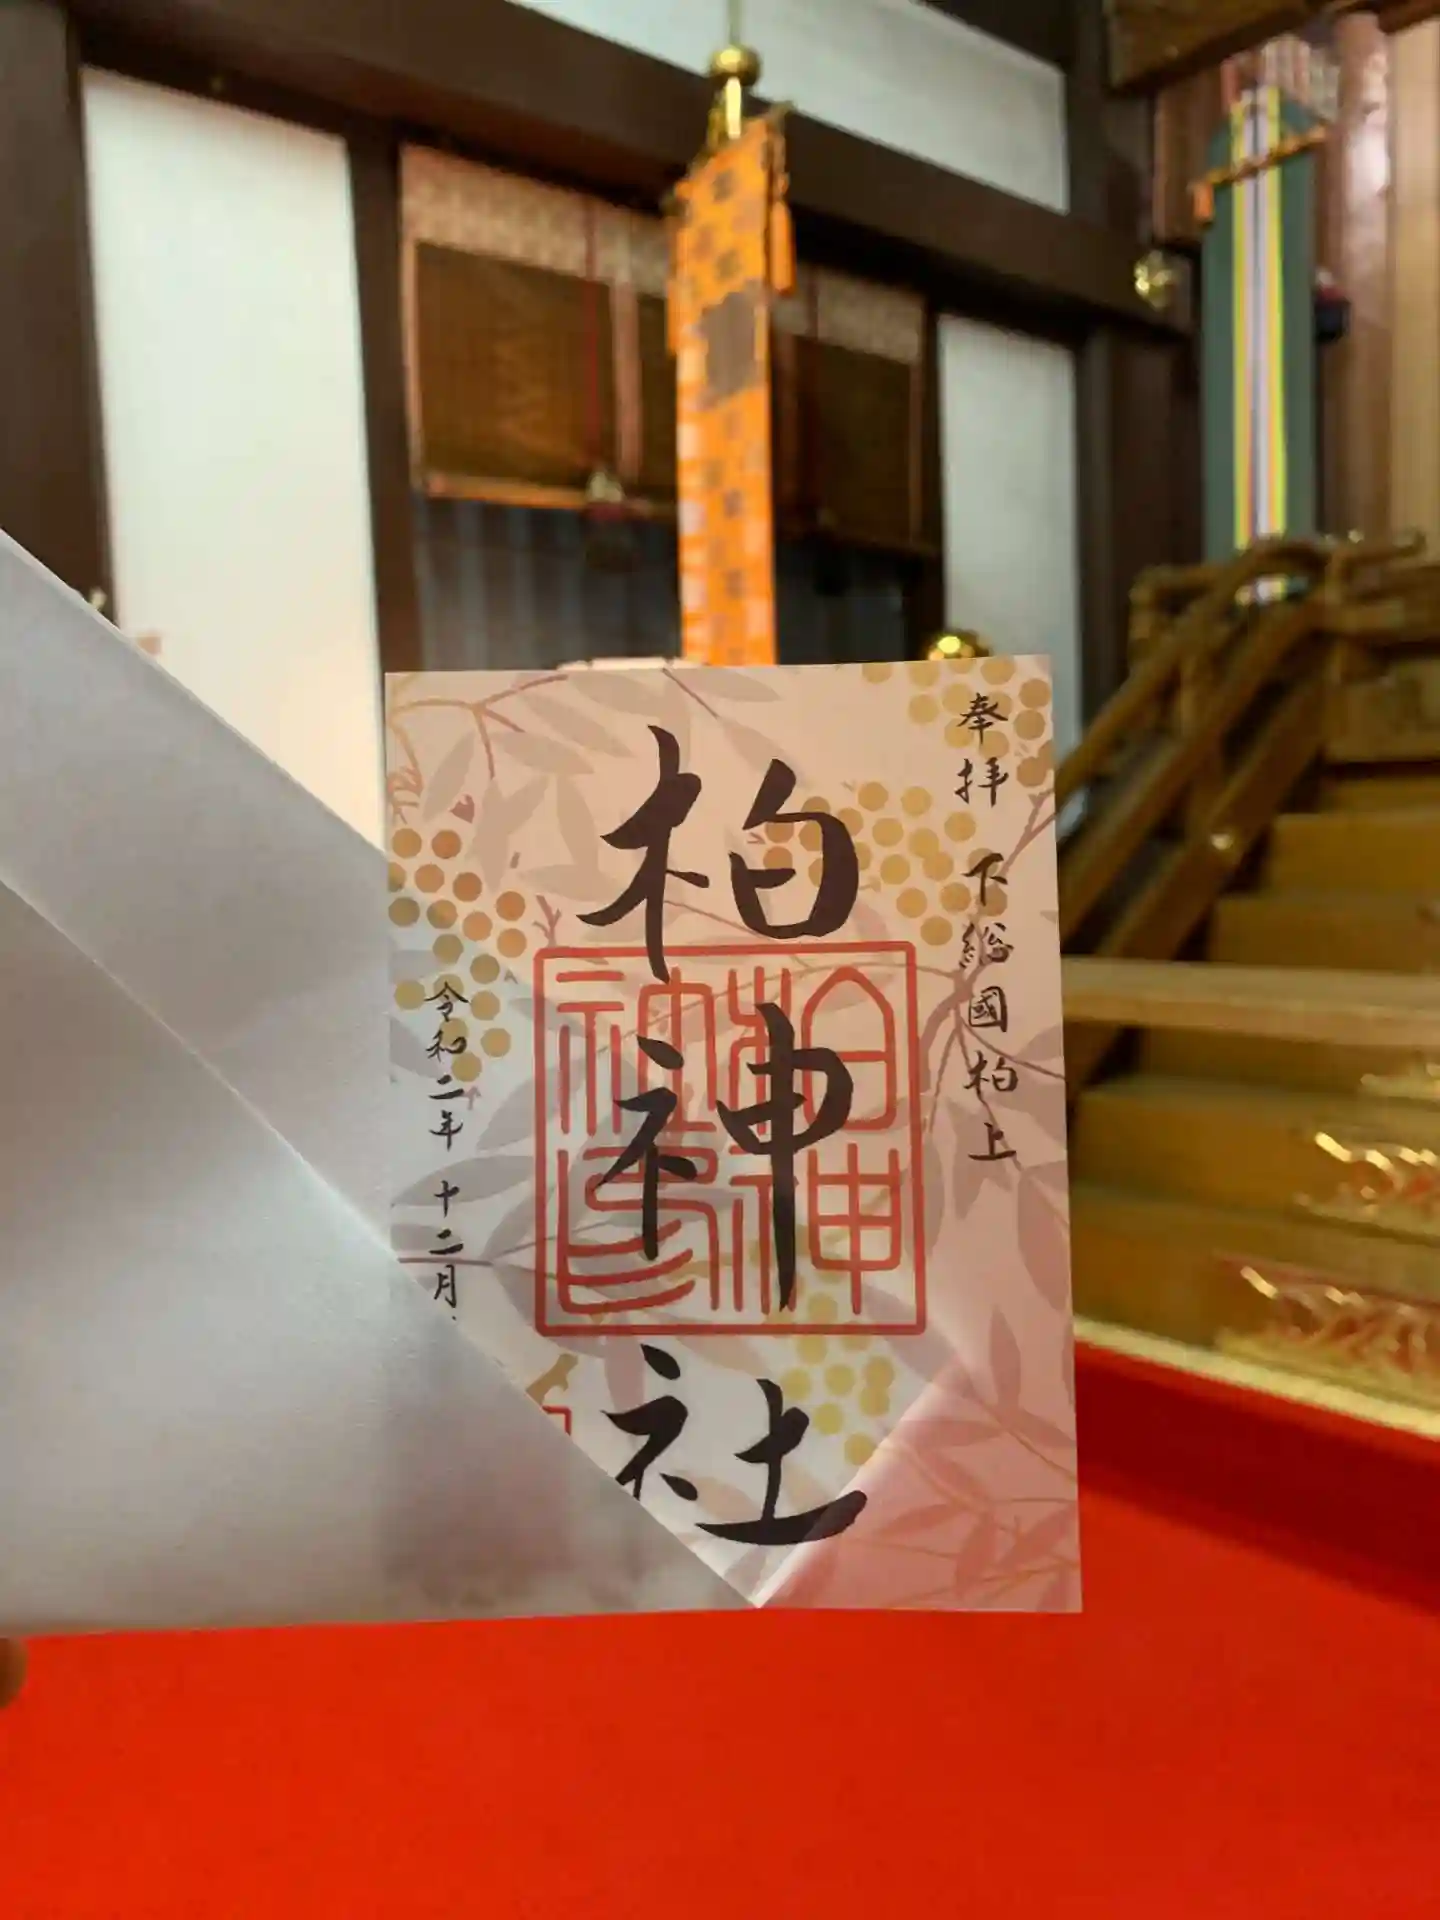 奉拝 下総國柏上
柏神社
柏神社印
令和二年 十二月